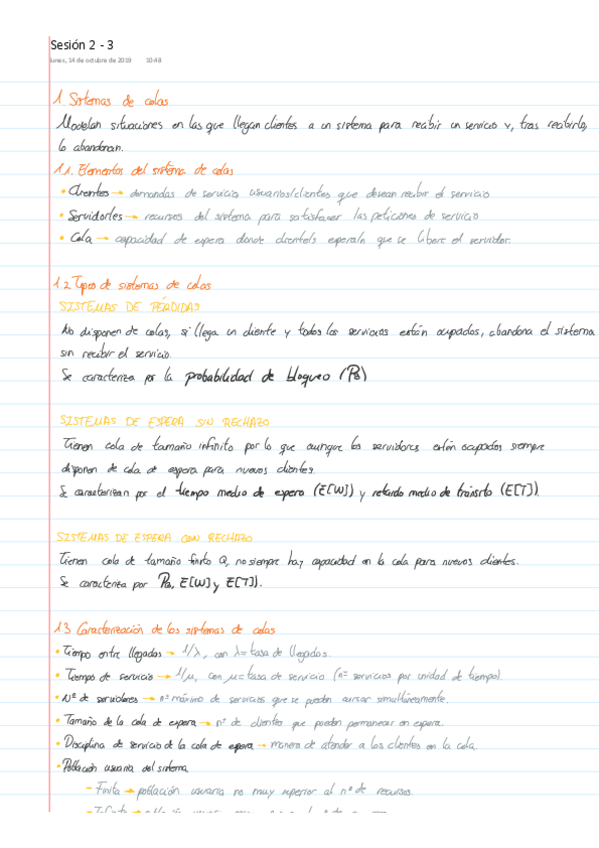 Sesión 2 - 3
lunes, 14 de octubre de 2019 10:48
1. Sistemas de colas
Modelan situaciones en las que llegan clientes a un sistema para recibir un servicio y, tras recibirlo,
lo abandonan.
1.1. Elementos del sistema de colas
• Clientes → demandas de servicio usuarios/clientes que desean recibir el servicio
• Servidor/es → recursos del sistema para satisfacer las peticiones de servicio
• Cola → capacidad de espera donde cliente/s espera/n que se libere el servidor.
1.2 Tipos de sistemas de colas
SISTEMAS DE PÉRDIDAS
No disponen de colas, si llega un cliente y todos los servicios están ocupados, abandona el sistema
sin recibir el servicio.
Se caracteriza por la probabilidad de bloqueo (PB)
SISTEMAS DE ESPERA SIN RECHAZO
Tienen cola de tamaño infinito por lo que aunque los servidores estén ocupados siempre
disponen de cola de espera para nuevos clientes.
Se caracterizan por el tiempo medio de espera (E[W]) y retardo medio de tránsito (E[T]).
SISTEMAS DE ESPERA CON RECHAZO
Tienen cola de tamaño finito Q, no siempre hay capacidad en la cola para nuevos clientes.
Se caracteriza por PB, E[W] y E[T]).
1.3 Caracterización de los sistemas de colas
• Tiempo entre llegadas → 1/λ, con λ = tasa de llegadas.
• Tiempos de servicio → 1/μ, con μ = tasa de servicio (nº servicios por unidad de tiempo).
• Nº de servidores → nº máximo de servicios que se pueden cursar simultáneamente.
• Tamaño de la cola de espera → nº de clientes que pueden permanecer en espera.
• Disciplina de servicio de la cola de espera → manera de atender a los clientes en la cola.
• Población usuaria del sistema
- Finita → población usuaria no muy superior al nº de recursos.